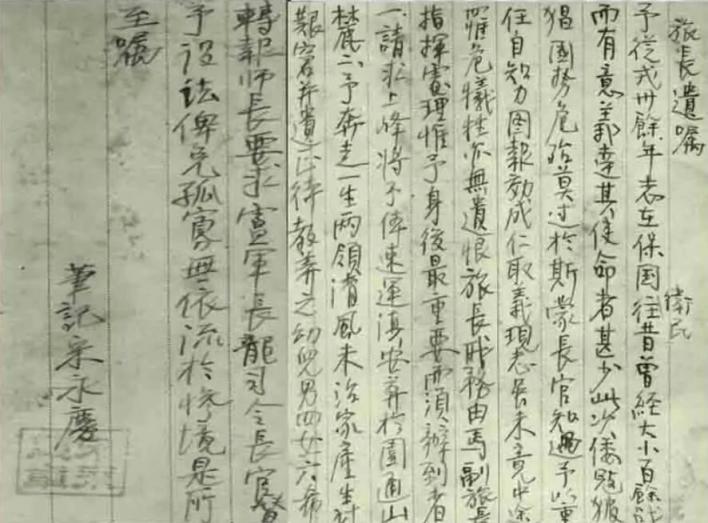 旅長遺囑
衛民
予從戎卅餘年志在保国往昔曾經大小百餘戰
而有意義達其使命者甚少此次倭寇猖
獗国势危殆莫过於斯蒙長官知遇予以重
任自知力图報効成仁取義現志尚未竟中途
罹危犧牲亦無遺恨旅長职務由馬副旅長
指揮處理惟予身後最重要而須辦到者
一請求上峰將予停速運滇安葬於圓通山
麓二予奔走一生两領清風未治家產生計
艱窘并遺正待教养之幼兒男四女六希
轉報師長要求盧軍長龍司令長官督
予设法俾免孤寡無依流於惨境是所
至嘱
筆記宋永慶